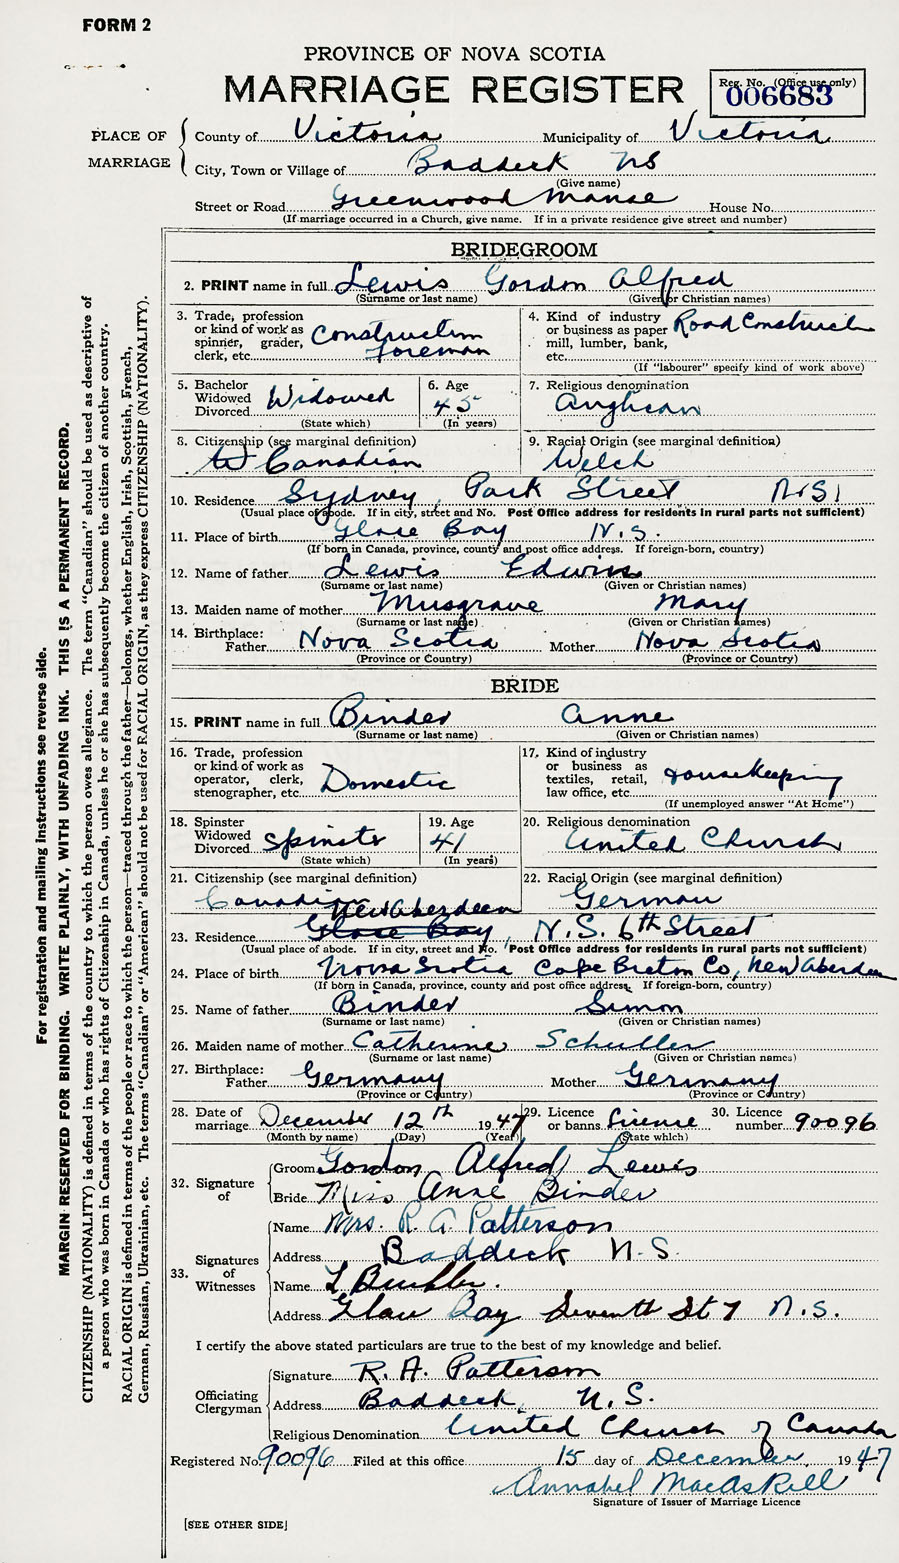 FORM 2
PROVINCE OF NOVA SCOTIA
MARRIAGE REGISTER
Reg. No. (Office use only)
006683
PLACE OF MARRIAGE
County of Victoria Municipality of Victoria
City, Town or Village of Baddeck NS
(Give name)
Street or Road Greenwood Manse House No.
(If marriage occurred in a Church, give name. If in a private residence give street and number)
BRIDEGROOM
2. PRINT name in full Lewis Gordon Alfred
(Surname or last name) (Given or Christian names)
3. Trade, profession or kind of work as spinner, grader, clerk, etc. Construction Foreman
4. Kind of industry or business as paper mill, lumber, bank, etc. Road Construct
(If "labourer" specify kind of work above)
5. Bachelor Widowed Divorced Widowed
(State which)
6. Age 45
(In years)
7. Religious denomination Anglican
8. Citizenship (see marginal definition) Canadian
9. Racial Origin (see marginal definition) Welch
10. Residence Sydney, Park Street N.S.
(Usual place of abode. If in city, street and No. Post Office address for residents in rural parts not sufficient)
11. Place of birth Glace Bay N.S.
(If born in Canada, province, county and post office address. If foreign-born, country)
12. Name of father Lewis Edwin
(Surname or last name) (Given or Christian names)
13. Maiden name of mother Musgrave Mary
(Surname or last name) (Given or Christian names)
14. Birthplace: Father Nova Scotia Mother Nova Scotia
(Province or Country) (Province or Country)
BRIDE
15. PRINT name in full Binder Anne
(Surname or last name) (Given or Christian names)
16. Trade, profession or kind of work as operator, clerk, stenographer, etc. Domestic
17. Kind of industry or business as textiles, retail, law office, etc. Housekeeping
(If unemployed answer "At Home")
18. Spinster Widowed Divorced Spinster
(State which)
19. Age 41
(In years)
20. Religious denomination United Church
21. Citizenship (see marginal definition) Canadian
22. Racial Origin (see marginal definition) German
New Aberdeen
23. Residence Glace Bay, N.S. 6th Street
(Usual place of abode. If in city, street and No. Post Office address for residents in rural parts not sufficient)
24. Place of birth Nova Scotia Cape Breton Co, New Aberdeen
(If born in Canada, province, county and post office address. If foreign-born, country)
25. Name of father Binder Simon
(Surname or last name) (Given or Christian names)
26. Maiden name of mother Catherine Schuller
(Surname or last name) (Given or Christian names)
27. Birthplace: Father Germany Mother Germany
(Province or Country) (Province or Country)
28. Date of marriage December 12th 1947
(Month by name) (Day) (Year)
29. Licence or banns License
(State which)
30. Licence number 90096
32. Signature of
Groom Gordon Alfred Lewis
Bride Miss Anne Binder
33. Signatures of Witnesses
Name Mrs. R. A. Patterson
Address Baddeck N.S.
Name
Address Glace Bay Seventh St 7 N.S.
I certify the above stated particulars are true to the best of my knowledge and belief.
Officiating Clergyman
Signature R. A. Patterson
Address Baddeck, N.S.
Religious Denomination United Church of Canada
Registered No. 90096 Filed at this office 15 day of December 1947
Annabel MacAskill
Signature of Issuer of Marriage Licence
[SEE OTHER SIDE]
For registration and mailing instructions see reverse side.
MARGIN RESERVED FOR BINDING. WRITE PLAINLY, WITH UNFADING INK. THIS IS A PERMANENT RECORD.
CITIZENSHIP (NATIONALITY) is defined in terms of the country to which the person owes allegiance. The term "Canadian" should be used as descriptive of
a person who was born in Canada or who has rights of Citizenship in Canada, unless he or she has subsequently become the citizen of another country.
RACIAL ORIGIN is defined in terms of the people or race to which the person—traced through the father—belongs, whether English, Irish, Scottish, French,
German, Russian, Ukrainian, etc. The terms "Canadian" or "American" should not be used for RACIAL ORIGIN, as they express CITIZENSHIP (NATIONALITY).